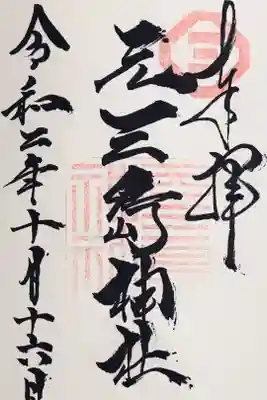 奉拝
三
元三嶋神社
令和二年十月十六日